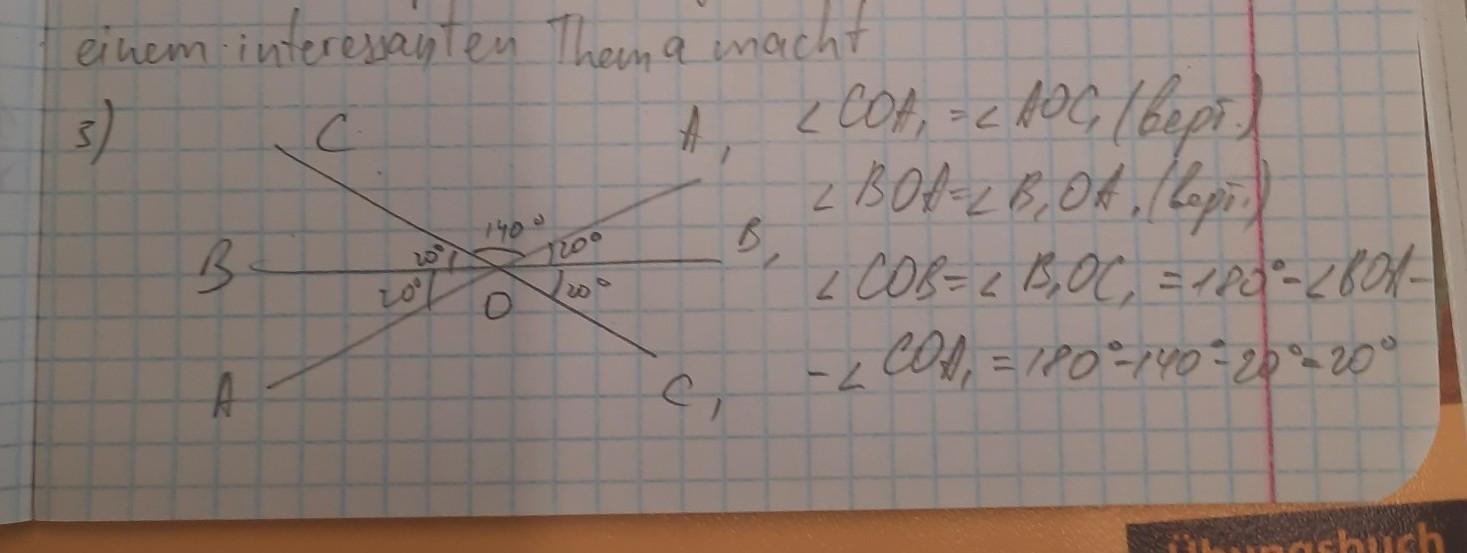 einem interessanten Thema macht
3)
C
A₁
140°
20°
20°
B
B₁
20°
20°
O
A
C₁
∠COA₁ = ∠AOC₁ (верт.)
∠BOA = ∠B₁OA₁ (верт.)
∠COB = ∠B₁OC₁ = 180° - ∠BOA -
- ∠COA₁ = 180° - 140° - 20° = 20°
Übungsbuch